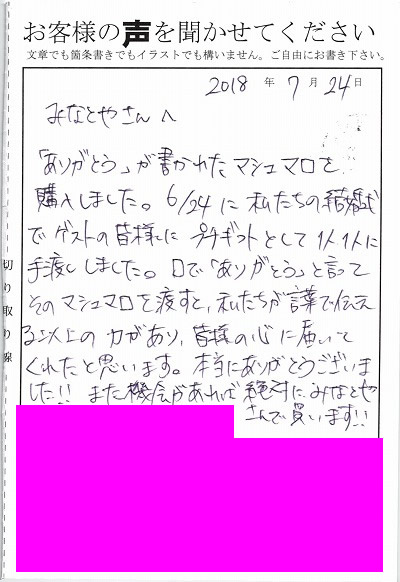 お客様の声を聞かせてください
文章でも箇条書きでもイラストでも構いません。ご自由にお書き下さい。
2018 年 7 月 24 日
みなとやさんへ
「ありがとう」が書かれたマシュマロを
購入しました。6/24に私たちの結婚式
でゲストの皆様にプチギフトとして1人1人に
手渡ししました。口で「ありがとう」と言って
そのマシュマロを渡すと、私たちが言葉で伝え
る以上の力があり、皆様の心に届いて
くれたと思います。本当にありがとうございま
した!! また機会があれば絶対にみなとや
さんで買います!!
切り取り線